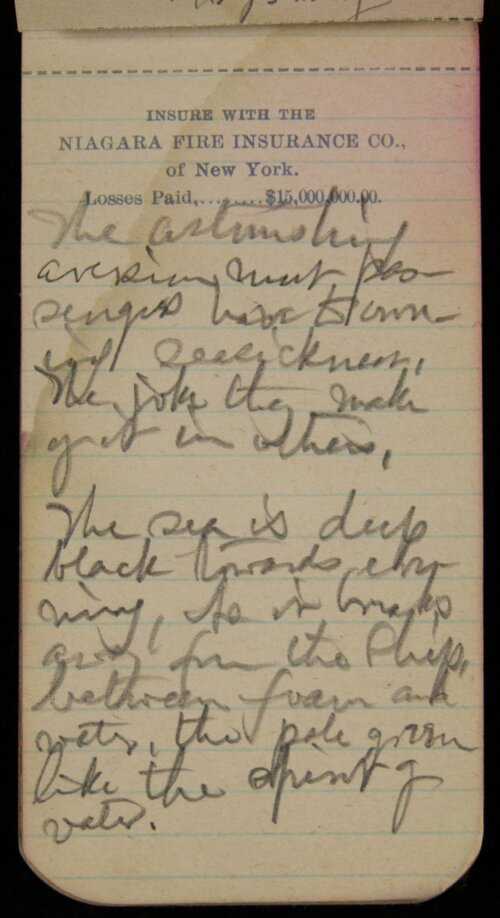 INSURE WITH THE
NIAGARA FIRE INSURANCE CO.,
of New York.
Losses Paid,.........$15,000,000.00.
The astonishing
aversion most pas-
sengers have to own-
ing seasickness,
The joke they make
of it in others,
The sea is deep
black towards eve-
ning, As it breaks
away from the ship,
between foam and
water, the pale green
like the spirit of
water.